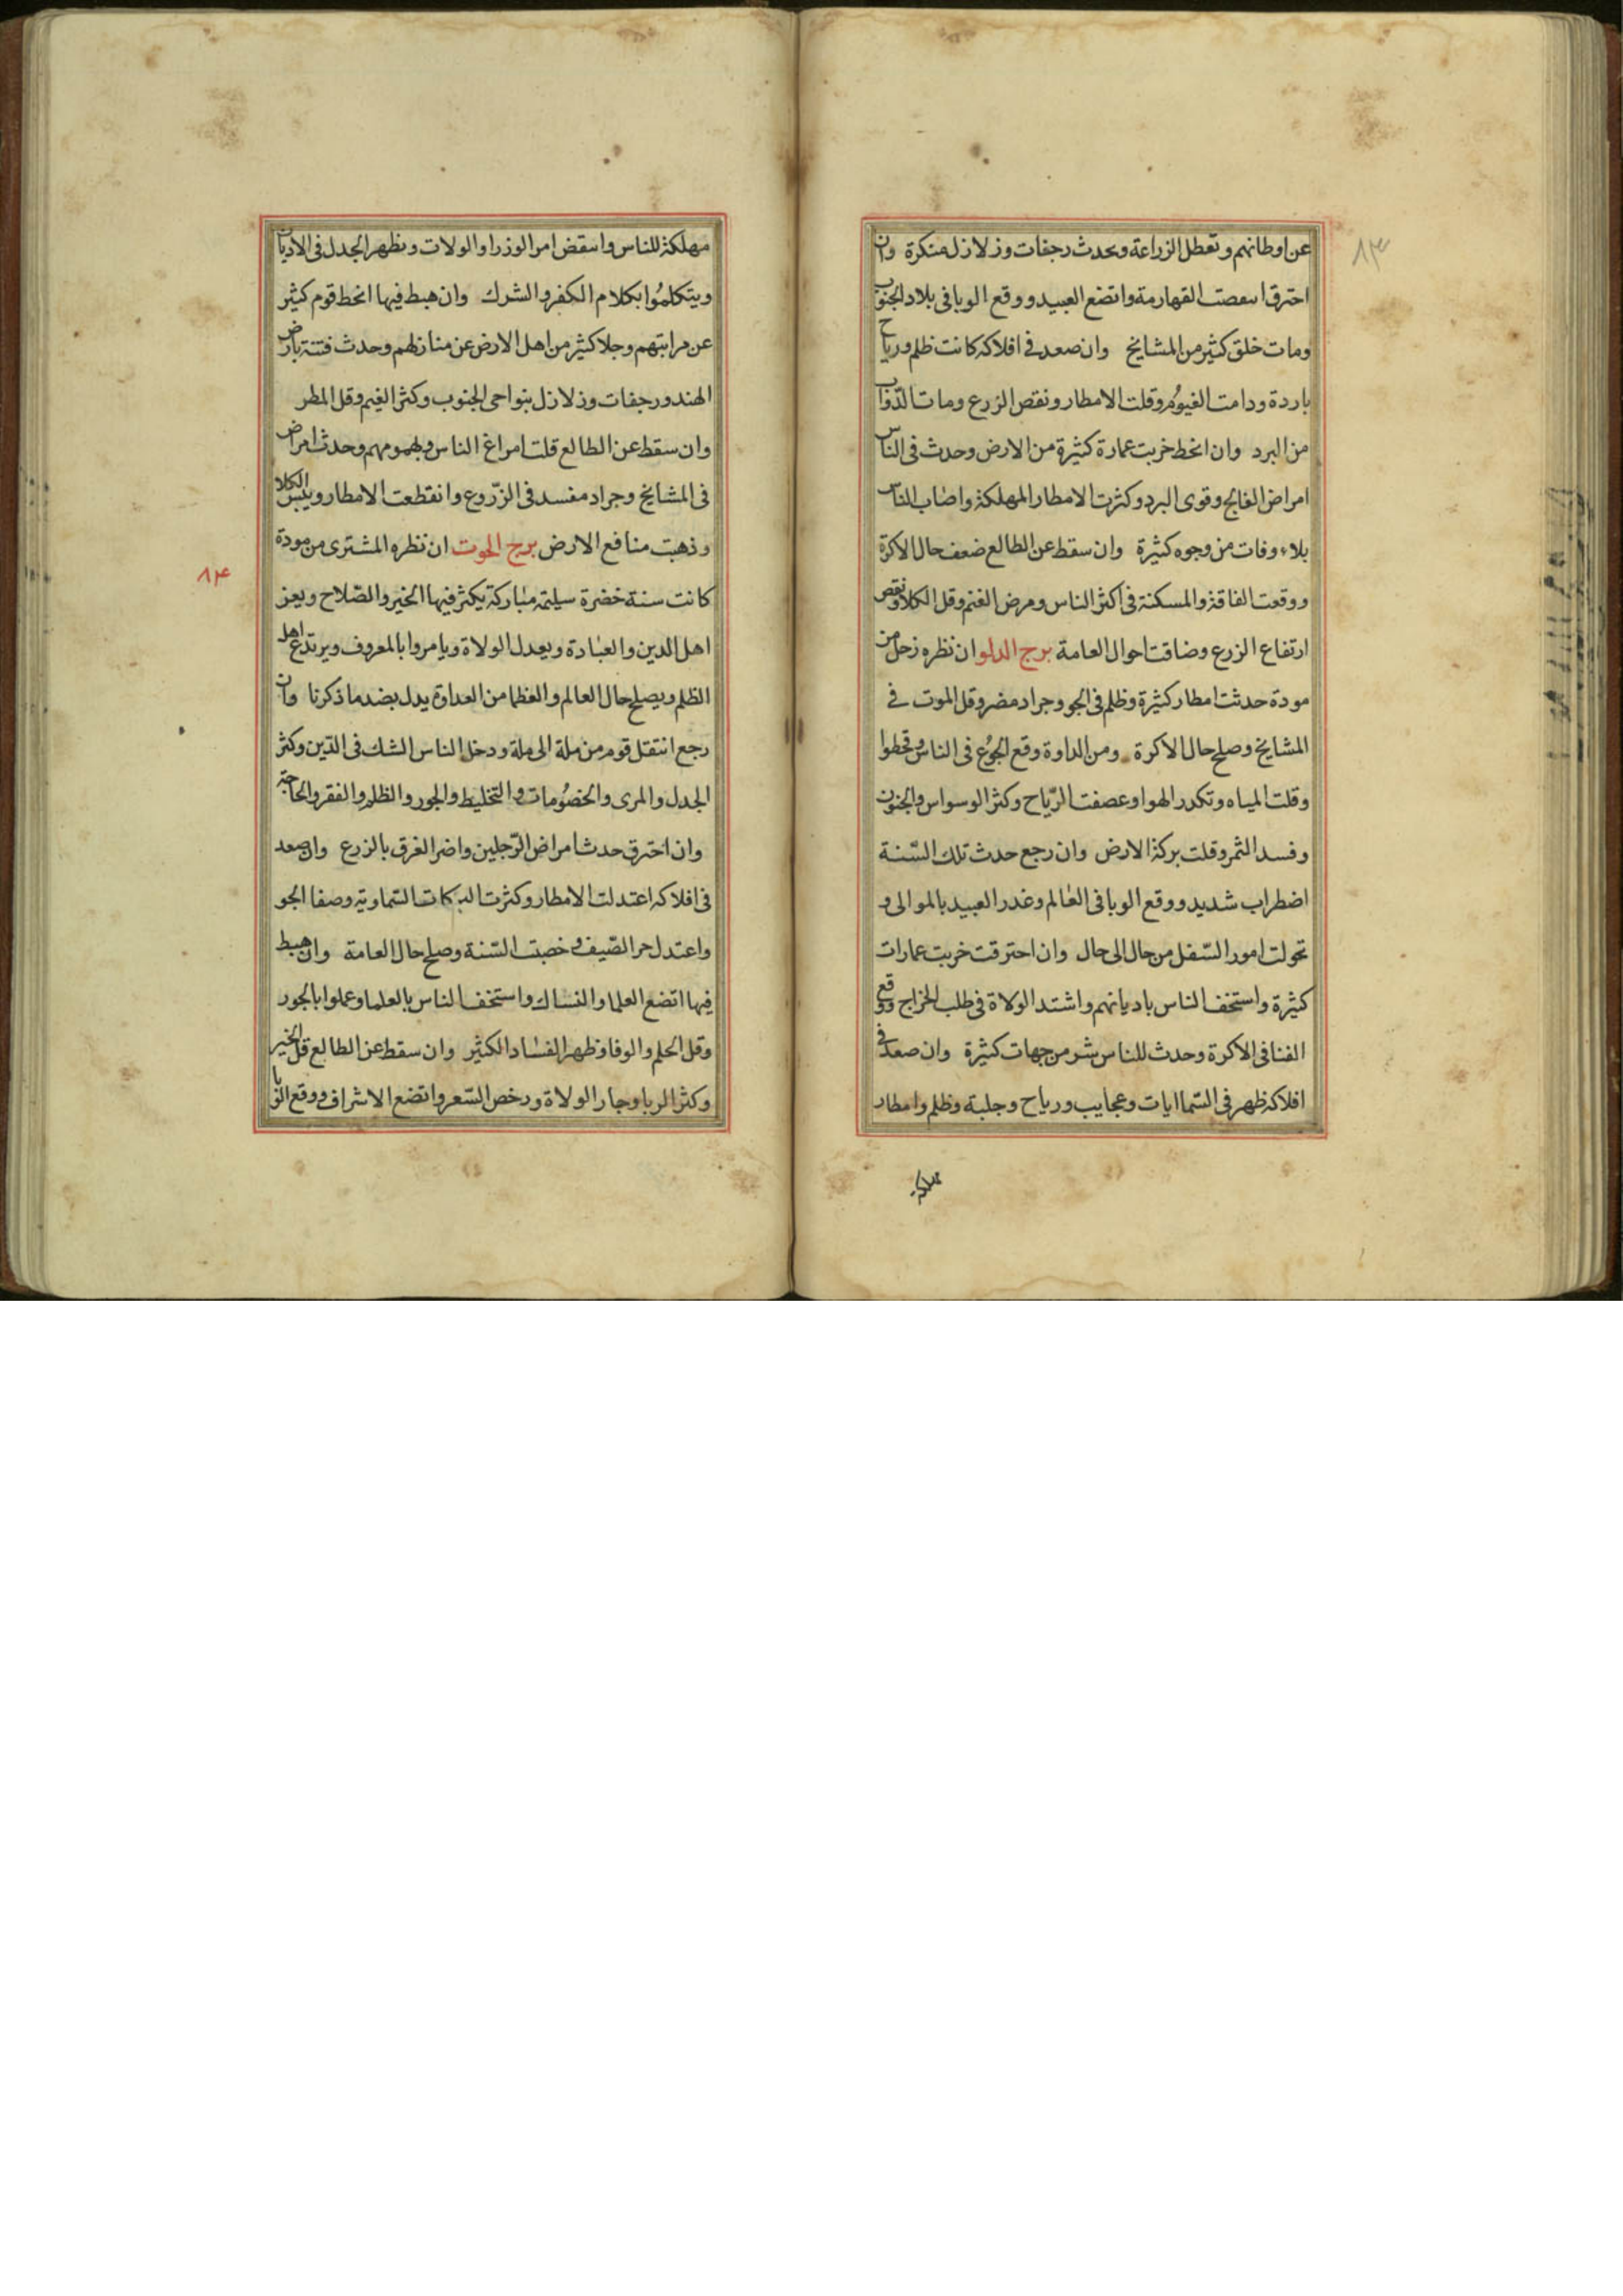 ٨٣
عن اوطانهم وتعطل الزراعة ويحدث رجفات وزلازل منكرة وان
احترق القهارمة واتضع العبيد ووقع الوبا فى بلاد الجنوب
ومات خلق كثير من المشايخ وان صعد فى افلاكه كانت ظلم ورياح
باردة ودامت الغيوم وقلت الامطار ونقص الزرع ومات الدّواب
من البرد وان انحط خربت عمارة كثيرة من الارض وحدث فى الناس
امراض الفالج وقوى البرد وكثرت الامطار المهلكة واصاب الناس
بلاء وفات من وجوه كثيرة وان سقط عن الطالع ضعف حال الاكرة
ووقعت الفاقة والمسكنة فى اكثر الناس ومرض الغنم وقل الكلا ونقص
ارتفاع الزرع وضاقت احوال العامة برج الدلو ان نظره زحل من
مودة حدثت امطار كثيرة وظلم فى الجو وجراد مضر وقل الموت فى
المشايخ وصلح حال الاكرة ومن الداوة وقع الجوع فى الناس وقحطوا
وقلت المياه وتكدر الهوا وعصفت الرّياح وكثر الوسواس والجنون
وفسد الثمر وقلت بركة الارض وان رجع حدث تلك السّنة
اضطراب شديد ووقع الوبا فى العالم وغدر العبيد بالموالى و
تحولت امور السّفل من حال الى حال وان احترقت خربت عمارات
كثيرة واستخف الناس باديانهم واشتد الولاة فى طلب الخراج ووقع
الفنا فى الاكرة وحدث للناس شر من جهات كثيرة وان صعد فى
افلاكه ظهر فى السّما ايات وعجايب ورياح وجلبة وظلم وامطار
مهلكة
مهلكة للناس وانتقض امر الوزرا والولات ويظهر الجدل فى الاديان
ويتكلموا بكلام الكفر والشرك وان هبط فيها انحط قوم كثير
عن مراتبهم وجلا كثير من اهل الارض عن منازلهم وحدث فتنة بارض
الهند ورجفات وزلازل بنواحى الجنوب وكثر الغيم وقل المطر
وان سقط عن الطالع قلت امراغ الناس وبهمومهم وحدث امراض
فى المشايخ وجراد مفسد فى الزّروع وانقطعت الامطار ويبس الكلا
وذهبت منافع الارض برج الحوت ان نظره المشترى من مودة
٨٤
كانت سنة خضرة سيلمة مباركة يكثر فيها الخير والصّلاح ويعز
اهل الدين والعبادة ويعدل الولاة ويامروا بالمعروف ويرتدع اهل
الظلم ويصلح حال العالم والعظما من العداوة يدل بضد ما ذكرنا وان
رجع انتقل قوم من ملة الى ملة ودخل الناس الشك فى الدّين وكثر
الجدل والمرى والخصومات والتخليط والجور والظلم والفقر والحاجة
وان احترق حدث امراض الرّجلين واضر الغرق بالزرع وان صعد
فى افلاكه اعتدلت الامطار وكثرت البركات السّماوية وصفا الجو
واعتدل حر الصّيف وخصبت السّنة وصلح حال العامة وان هبط
فيها اتضع العلما والنساك واستخف الناس بالعلما وعملوا بالجور
وقل الحلم والوفا وظهر الفساد الكثير وان سقط عن الطالع قل الخير
وكثر الربا وجار الولاة ورخص السّعر واتضع الاشراف ووقع الوبا